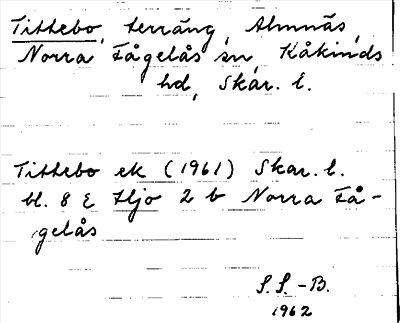 Tittebo, terräng, Almnäs,
Norra Fågelås sn, Kåkinds
hd, Skar. l.
Tittebo ek (1961) Skar. l.
bl. 8 E Hjo 2 b Norra Få-
gelås
S.S.-B.
1962